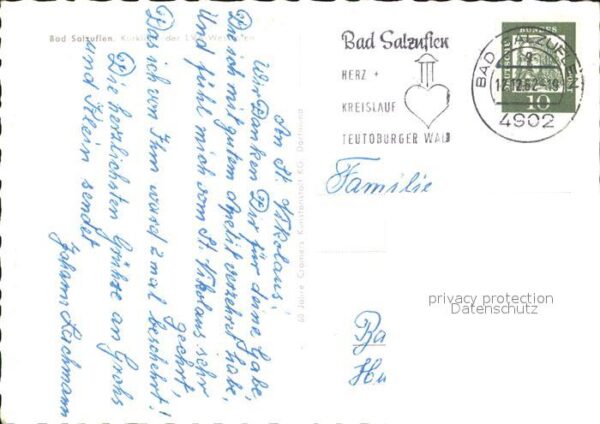 Bad Salzuflen. Kurklinik der LVA Westfalen
An St. Nikolaus!
Wir Danken Dir für deine Gabe,
Die ich mit gutem Apetit verzehret habe,
Und fühl mich vom St. Nikolaus sehr
geehrt,
Das ich von Ihm ward 2 mal beschehrt!
Die herzlichsten Grühze an Grohs
und Klein sendet
Johann Lachmann
60 Jahre Cramers Kunstanstalt KG. Dortmund
Bad Salzuflen
HERZ +
KREISLAUF
TEUTOBURGER WALD
BAD SALZUFLEN
17.12.62-19
4902
DEUTSCHE BUNDESPOST
10
Familie
Ba
Hu
privacy protection
Datenschutz